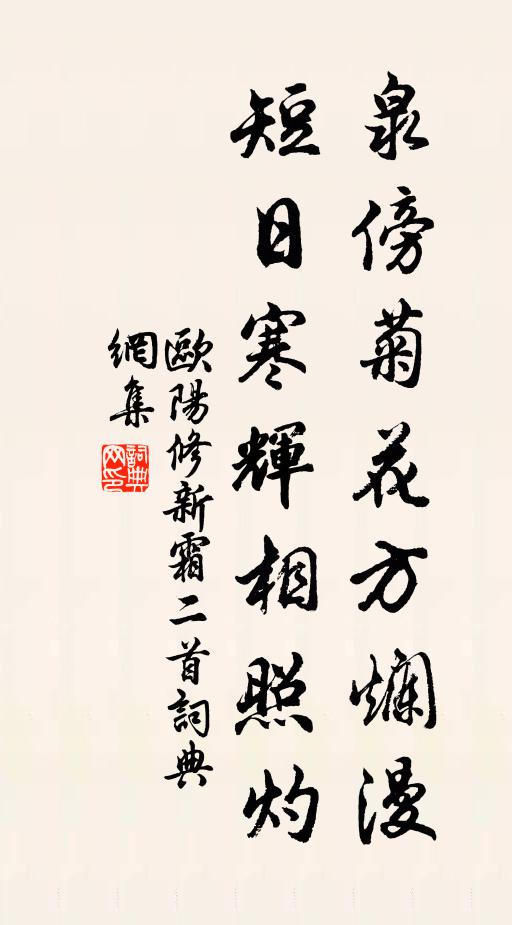 泉傍菊花方爛漫
短日寒輝相照灼
歐陽修新霜二首詞典
網集
詞典
网印